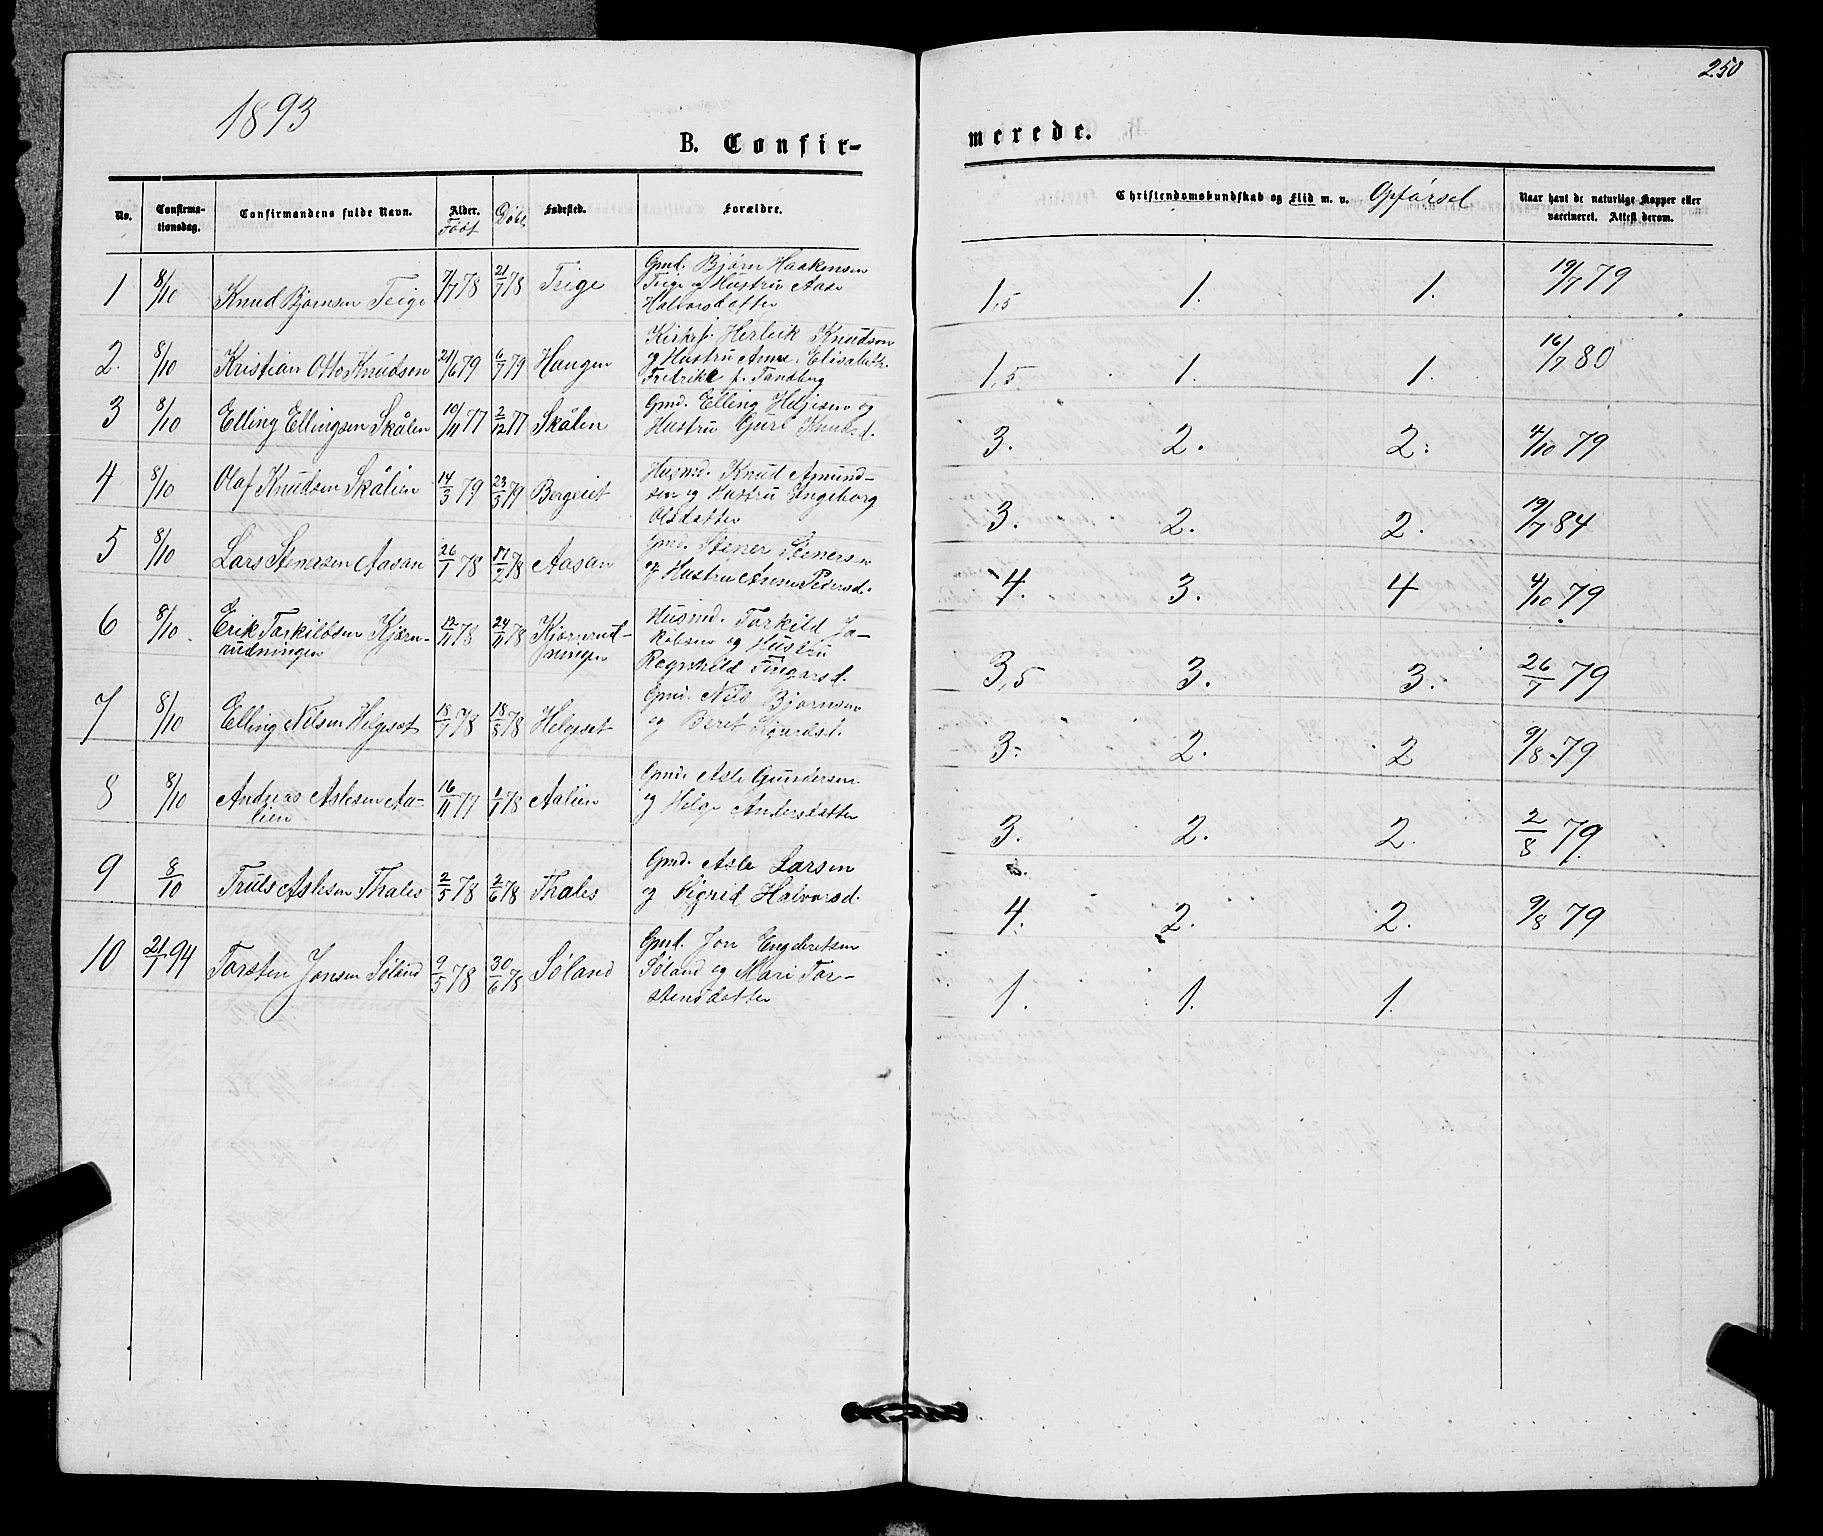 250
1893
B. Confir-
merede.
No.
Confirma-
tionsdag.
Confirmandens fulde Navn.
Alder.
Født
Døbt
Fødested.
Forældre.
Christendomskundskab og Flid m. v. Opførsel
Naar havt de naturlige Kopper eller
vaccineret. Attest derom.
Gmd. Bjørn Haakensen
1 8/10 Knud Bjørnsen Teige 7/7 78 21/7 78 Teige Teige og Hustru Aase 1,5 1. 1. 19/7 79
Halvorsdatter
Kirkes. Herleik Knudson
2. 8/10 Kristian Otto Knudsen 24/6 79 6/7 79 Haugen og Hustru Anne Elisabeth 1,5 1. 1. 16/7 80
Fredrikke f. Tandberg
3 8/10 Elling Ellingsen Skålen 10/11 77 2/12 77 Skålen Gmd. Elling Helgesen og
Hustru Guri Knudsd. 3. 2. 2. 4/10 79
4 8/10 Olaf Knudsen Skålien 14/3 79 23/3 79 Bergeiet Husmd. Knud Amund-
sen og Hustru Ingeborg 3. 2. 2. 19/7 84
Olsdatter
5 8/10 Lars Stenersen Aasan 26/1 78 17/2 78 Aasan Gmd. Stener Stenersen
og Hustru Anne Pedersd. 4. 3. 4 4/10 79
6 8/10 Erik Torkildsen Kjørn- 12/11 78 24/11 78 Kjørnrud- Husmd. Torkild Ja-
rudningen ningen kobsen og Hustru
Ragnhild Fingarsd. 3,5 3. 3. 26/7 79
7 8/10 Elling Nilsen Helgeset 18/7 78 18/8 78 Helgeset Gmd. Nils Bjørnsen
og Beret Sjugurdsd. 3. 2. 2 9/8 79
8 8/10 Andreas Aslesen Aa- 16/11 77 1/1 78 Aalien Gmd. Asle Gundersen
lien og Helge Andersdatter 3. 2. 2. 2/8 79.
9 8/10 Truls Aslesen Thales 2/5 78 2/6 78 Thales Gmd. Asle Larsen
og Sigrid Halvorsd. 4. 2. 2. 9/8 79
10 21/1 94 Torsten Jonsen Søland 9/5 78 30/6 78 Søland Gmd. Jon Engebretsen
Søland og Mari Tor- 1. 1. 1.
stensdatter